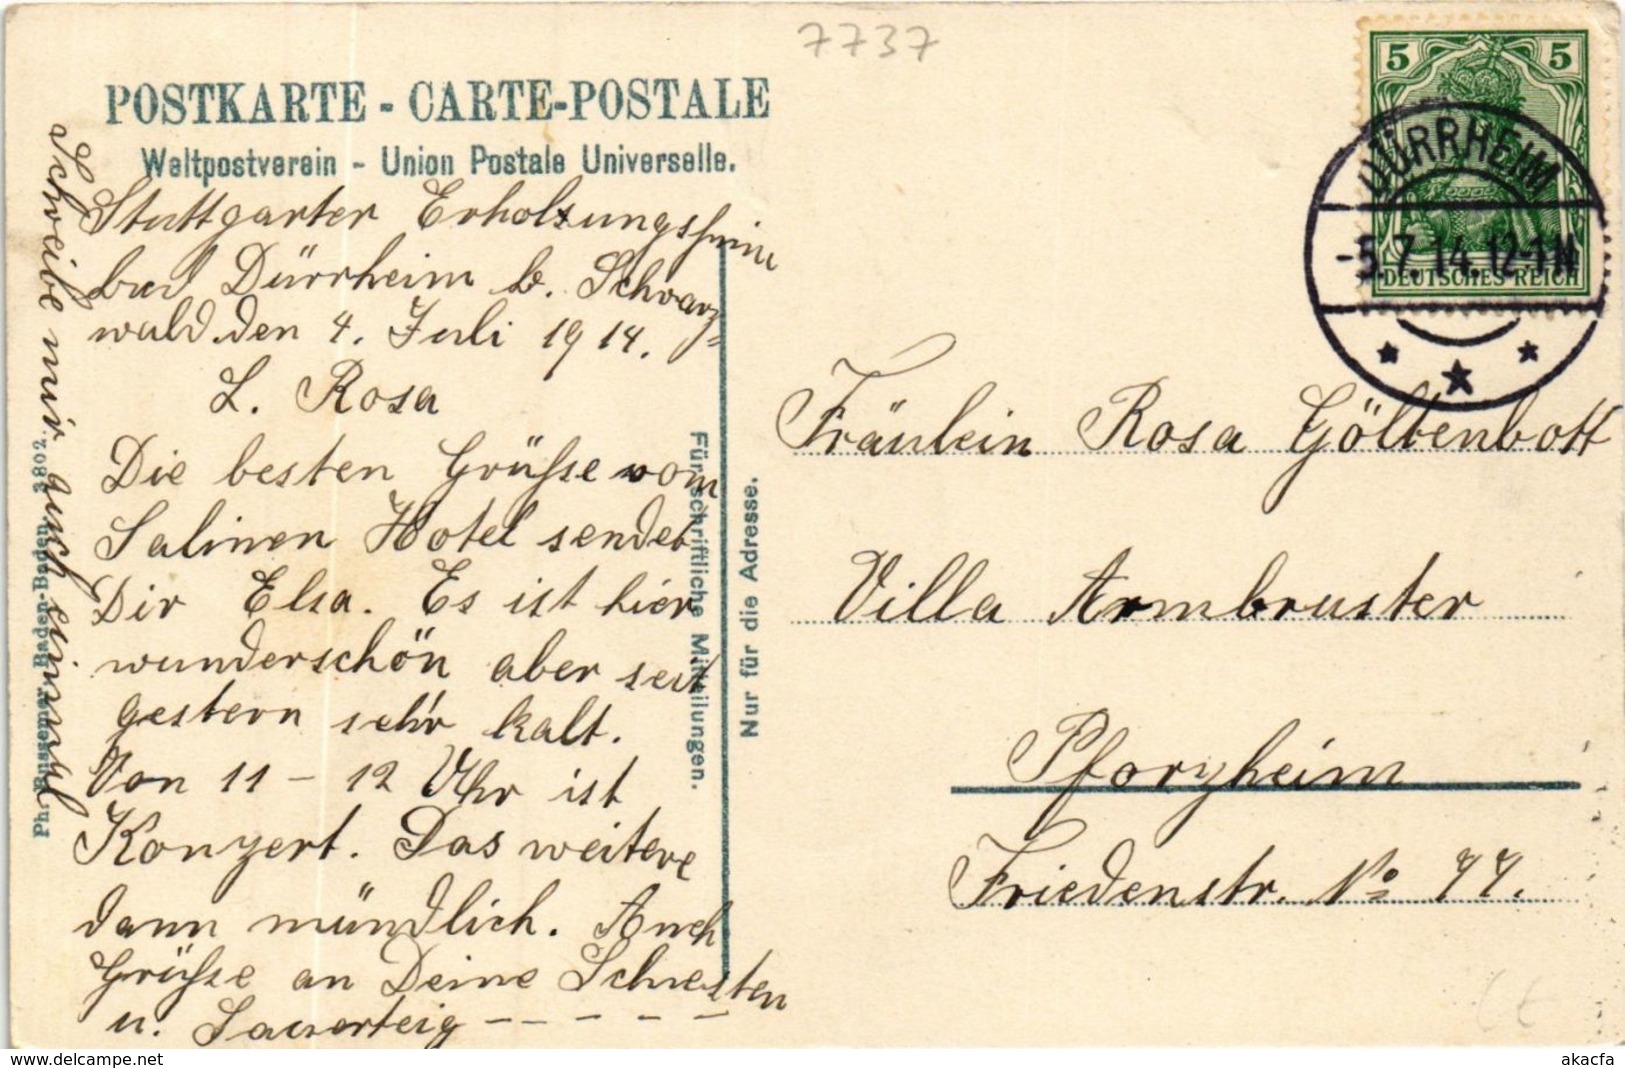 7737
POSTKARTE - CARTE-POSTALE
Weltpostverein - Union Postale Universelle.
Stuttgarter Erholungsheim
bad Dürrheim b. Schwarz-
wald. den 4. Juli 1914.
L. Rosa
Die besten Grüße vom
Salinen Hotel sendet
Dir Elsa. Es ist hier
wunderschön aber seit
gestern sehr kalt.
Von 11 - 12 Uhr ist
Konzert. Das weitere
dann mündlich. Auch
Grüße an Deine Schwesten
u. Sauerteig - - - - - -
Schreibe mir auch einmal
Ph. Bussemer, Baden-Baden. 3802.
Für schriftliche Mitteilungen.
Nur für die Adresse.
5 5
DEUTSCHES REICH
DÜRRHEIM
-5.7.14.12-1N
Fräulein Rosa Göltenbott
Villa Armbruster
Pforzheim
Friedenstr. No 77.
www.delcampe.net
akacfa